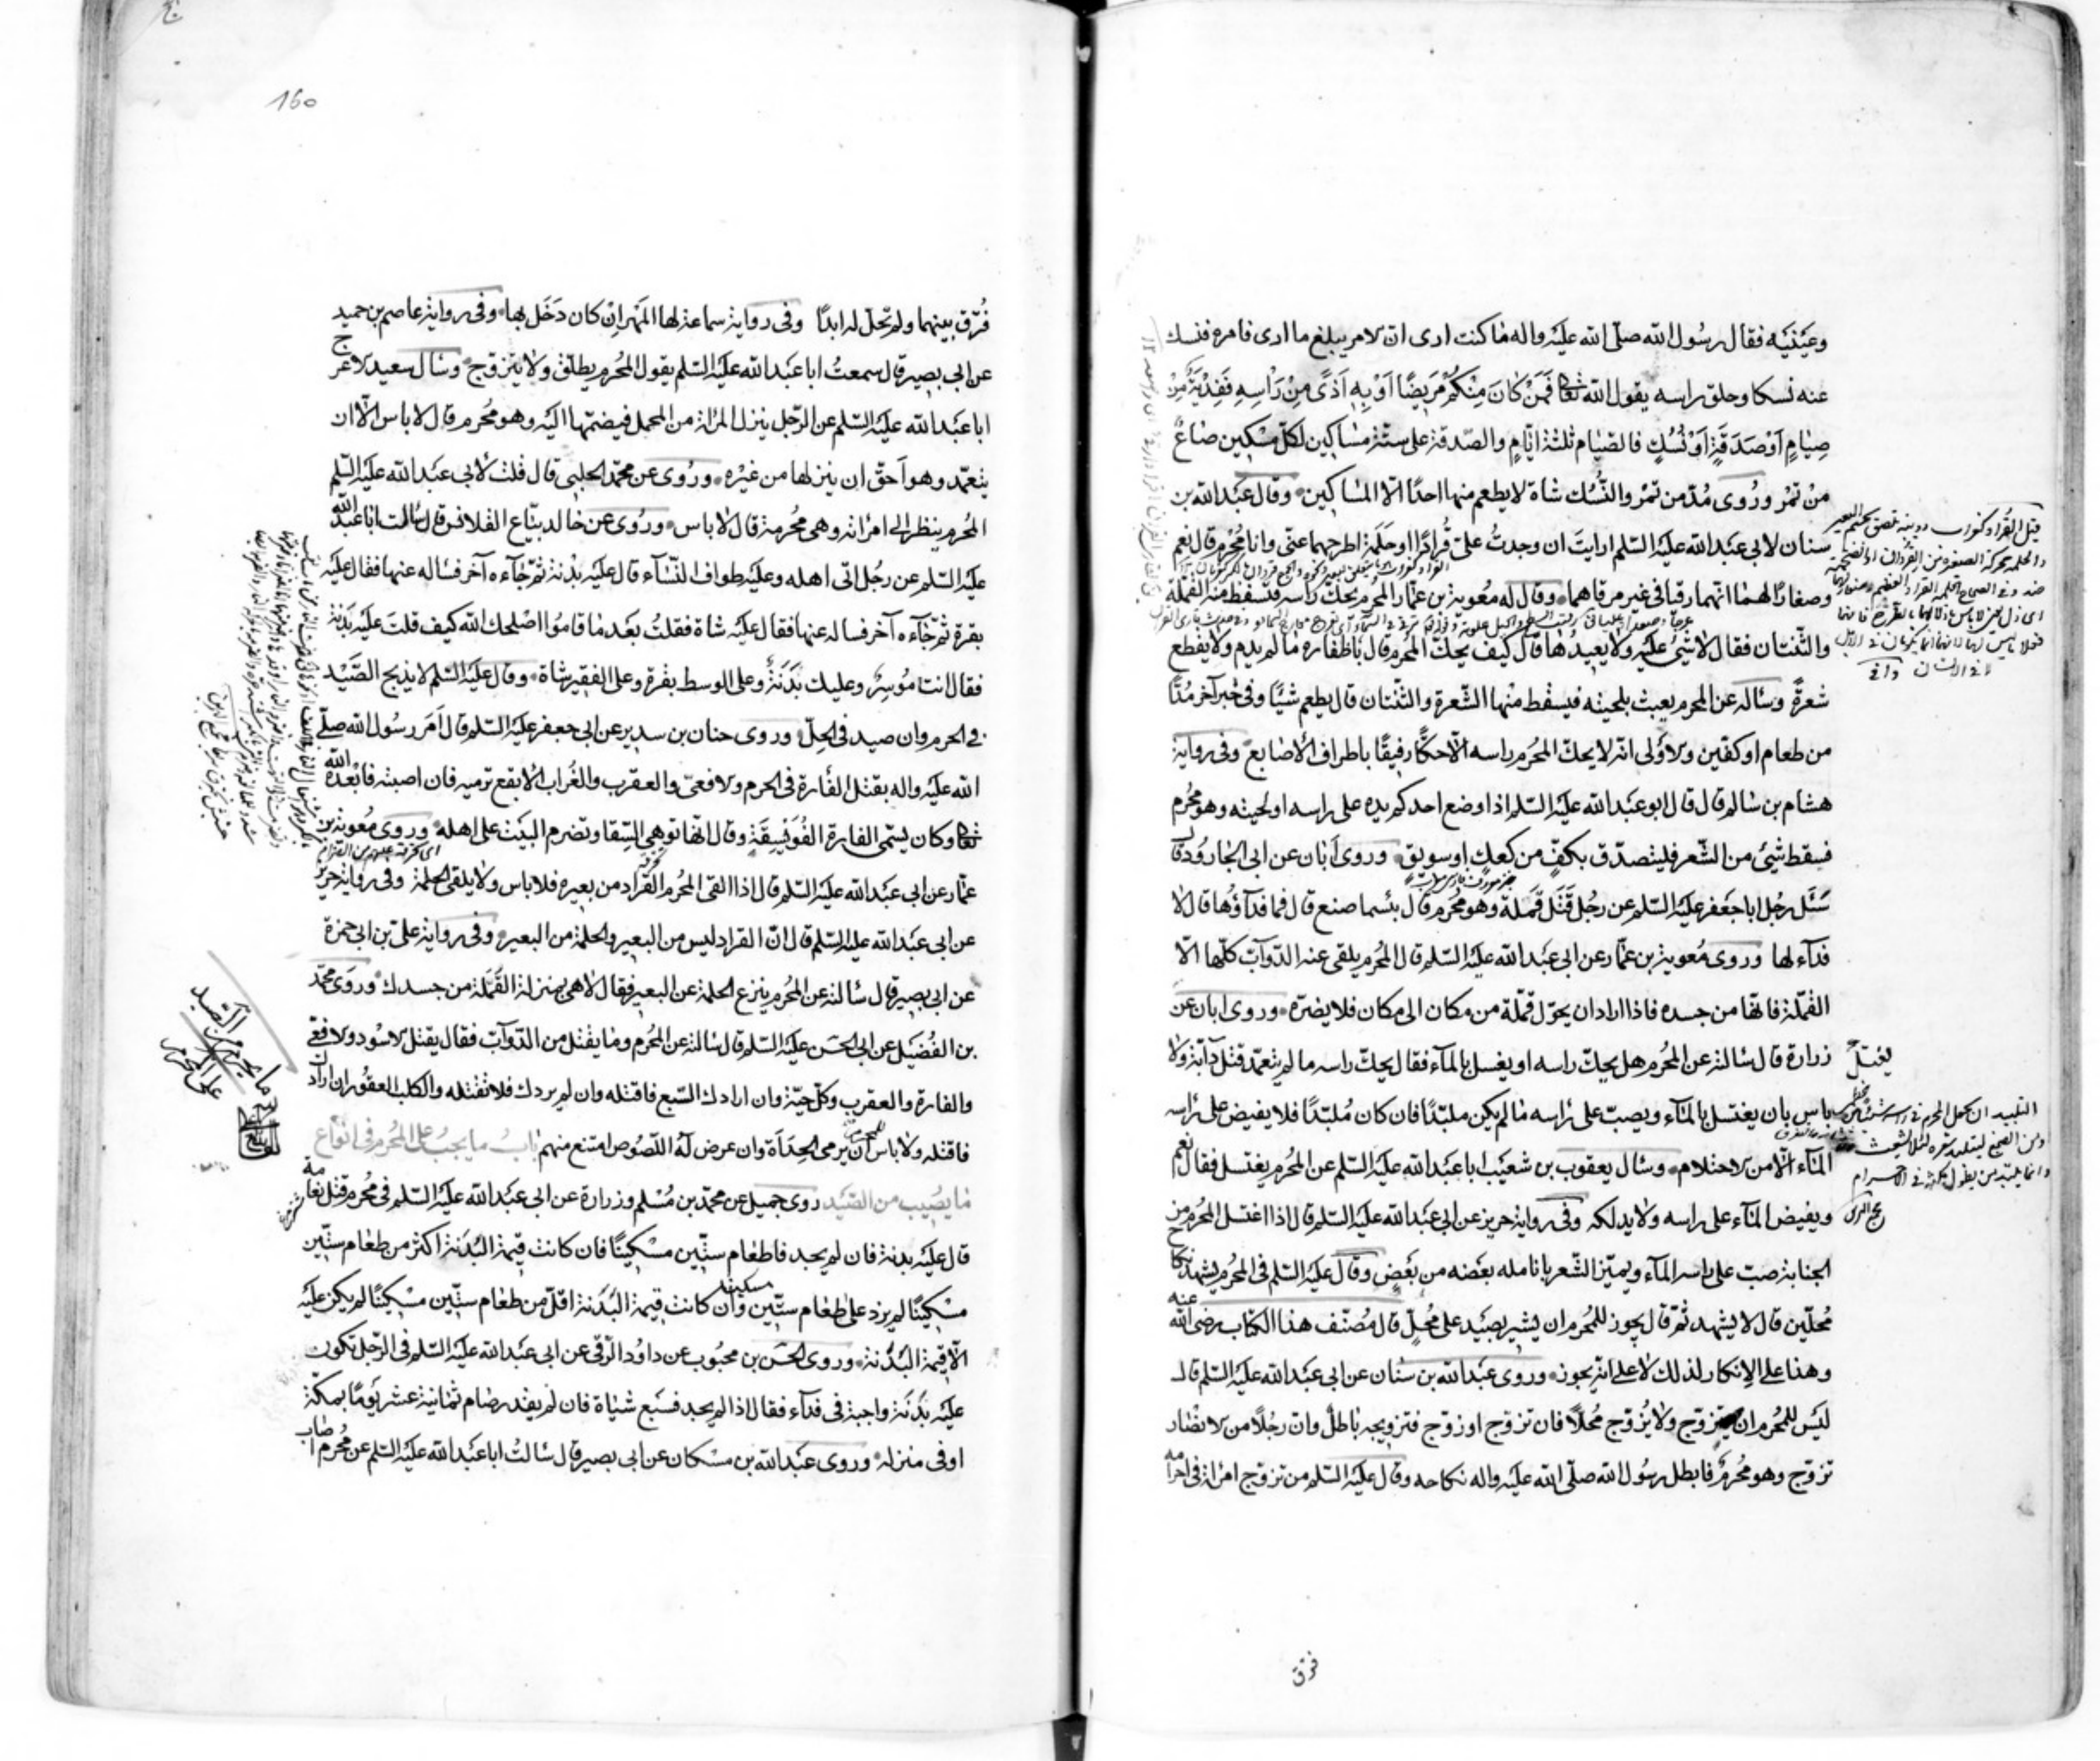 وعينيه فقال رسول الله صلى الله عليه واله ما كنت ارى ان الامر يبلغ ما ارى فامره فنسك
عنه نسكا وحلق راسه يقول الله تعالى فَمَنْ كَانَ مِنْكُمْ مَرِيضًا اَوْ بِهِ اَذًى مِنْ رَاْسِهِ فَفِدْيَةٌ مِنْ
صِيَامٍ اَوْ صَدَقَةٍ اَوْ نُسُكٍ فالصيام ثلثة ايام والصدقة على ستة مساكين لكل مسكين صاع
من تمر ورُوى مُدّ من تمر والنُسُك شاة لا يطعم منها احدًا الا المساكين وقال عبد الله بن
سنان لابى عبد الله عليه السلم ارايت ان وجدتُ علىّ قُرادًا او حَلَمَة اطرحهما عنّى وانا مُحرم قال نعم
وصغارًا لهما انهما رقيا فى غير مرقاهما وقال له معوية بن عمار المُحرم يحكّ راسه فتسقط منه القملة
والثنتان فقال لا شئ عليه ولا يعيدُها قال كيف يحكّ المُحرم قال باظفاره ما لم يدم ولا يقطع
شعرةً وساله عن المحرم يعبث بلحيته فيسقط منها الشعرة والثنتان قال يطعم شيئًا وفى خبر آخر مُدًّا
من طعام او كفّين والاولى انه لا يحكّ المُحرم راسه الّا حكًّا رفيقًا باطراف الاصابع وفى رواية
هشام بن سالم قال قال ابو عبد الله عليه السلم اذا وضع احدكم يده على راسه او لحيته وهو مُحرم
فسقط شئ من الشعر فليتصدّق بكفّ من كعك او سويق وروى ابان عن ابى الجارود قال
سَئَل رجُل ابا جعفر عليه السلم عن رجُل قَتَل قَملة وهو مُحرم قال بئسما صنع قال فما فدآؤُها قال لا
فدآء لها وروى مُعوية بن عمّار عن ابى عبد الله عليه السلم قال المُحرم يلقى عنه الدوآبّ كلّها الّا
القملة فانها من جسده فاذا اراد ان يحوّل قملة من مكان الى مكان فلا يضرّه وروى ابان عن
زرارة قال سالته عن المُحرم هل يحكّ راسه او يغسل بالمآء فقال يحكّ راسه ما لم يتعمّد قتل دآبّة ولا
باس بان يغتسل بالمآء ويصبّ على راسه ما لم يكن ملبّدًا فان كان مُلبّدًا فلا يفيض على راسه
المآء الّا من الاحتلام وسال يعقوب بن شعيب ابا عبد الله عليه السلم عن المُحرم يغتسل فقال نعم
ويفيض المآء على راسه ولا يدلكه وفى رواية حريز عن ابى عبد الله عليه السلم قال اذا اغتسل المُحرم من
الجنابة صبّ على راسه المآء ويميّز الشعر بانامله بعضه من بعض وقال عليه السلم فى المُحرم يشهد نكاح
مُحلّين قال لا يشهد ثمّ قال يجوز للمُحرم ان يشير بصيد على مُحلّ قال مُصنّف هذا الكتاب رضى الله عنه
وهذا على الانكار لذلك لا على انه يجوز وروى عبد الله بن سنان عن ابى عبد الله عليه السلم قال
ليس للمُحرم ان يتزوج ولا يُزوّج مُحلًّا فان تزوج او زوّج فتزويجه باطل وان رجُلًا من الانصار
تزوّج وهو مُحرم فابطل رسُول الله صلى الله عليه واله نكاحه وقال عليه السلم من تزوّج امراة فى احرامه
فرّق
160
فُرّق بينهما ولم تحلّ له ابدًا وفى رواية سماعة لها المَهر ان كان دَخَل بها وفى رواية عاصم بن حميد
عن ابى بصير قال سمعتُ ابا عبد الله عليه السلم يقول المُحرم يطلّق ولا يتزوّج وسال سعيد الاعرج
ابا عبد الله عليه السلم عن الرجل ينزل المراة من المحمل فيضمّها اليه وهو مُحرم قال لا باس الّا ان
يتعمّد وهو اَحقّ ان ينزلها من غيره ورُوى عن محمّد الحلبى قال قلت لابى عبد الله عليه السلم
المُحرم ينظر الى امراته وهى مُحرمة قال لا باس ورُوى عن خالد بيّاع القلانس قال سالت ابا عبد الله
عليه السلم عن رجُل اتى اهله وعليه طواف النّسآء قال عليه بدنة ثمّ جآءه آخر فساله عنها فقال عليه
بقرة ثمّ جآءه آخر فساله عنها فقال عليه شاة فقلتُ بعد ما قامُوا اصلحك الله كيف قلت عليه بدنة
فقال انت مُوسِر وعليك بَدَنَة وعلى الوسط بقرة وعلى الفقير شاة وقال عليه السلم لا يذبح الصّيد
فى الحرم وان صيد فى الحِلّ وروى حنان بن سدير عن ابى جعفر عليه السلم قال اَمَر رسُول الله صلّى
الله عليه واله بقتل الفارة فى الحرم والافعى والعقرب والغُراب الابقع ترميه فان اصبته فابعده الله
تعالى وكان يسمّى الفارة الفُوَيْسِقَة وقال انها توهى السّقا وتضرم البيت على اهله وروى مُعوية بن
عمّار عن ابى عبد الله عليه السلم قال اذا القى المُحرم القُراد من بعيره فلا باس ولا يلقى الحلمة وفى رواية حريز
عن ابى عبد الله عليه السلم قال انّ القراد ليس من البعير والحلمة من البعير وفى رواية علىّ بن ابى حمزة
عن ابى بصير قال سالته عن المُحرم ينزع الحلمة عن البعير فقال لا هى بمنزلة القَملة من جسدك وروى محمّد
بن الفُضيل عن ابى الحسَن عليه السلم قال سالته عن المُحرم وما يقتل من الدّوآبّ فقال يقتل الاسْود والافعى
والفارة والعقرب وكلّ حيّة وان ارادك السّبع فاقتله وان لم يردك فلا تقتله والكلب العقُور ان ارادك
فاقتله ولا باس للمحرم ان يرمى الحِدَاَة وان عرض له اللّصُوص امتنع منهم بابُ ما يجبُ على المُحرم فى انواع
ما يصُيب من الصّيد روى جميل عن محمّد بن مُسْلم وزرارة عن ابى عبد الله عليه السلم فى مُحرم قتل نعامة
قال عليه بدنة فان لم يجد فاطعام ستّين مسْكينًا فان كانت قيمة البُدنة اكثر من طعام ستّين
مسْكينًا لم يزد على طعام ستّين مسكينا وان كانت قيمة البَدَنة اقلّ من طعام ستّين مسْكينًا لم يكن عليه
الّا قيمة البَدَنة وروى الحسَن بن محبُوب عن داوُد الرّقى عن ابى عبد الله عليه السلم فى الرّجل تكون
عليه بَدَنَة واجبة فى فدآء فقال اذا لم يجد فسَبع شياة فان لم يقدر صام ثمانية عشر يومًا بمكّة
او فى منزله وروى عَبد الله بن مسْكان عن ابى بصير قال سالتُ ابا عَبد الله عليه السلم عن مُحرم اصاب
ما يجب على المحرم من الصيد